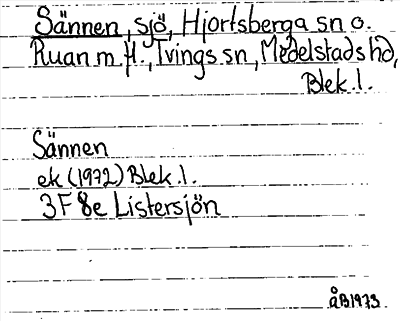 Sännen, sjö, Hjortsberga sn o.
Ruan m.fl., Tvings sn, Medelstads hd,
Blek.l.
Sännen
ek (1972) Blek.l.
3F 8e Listersjön
åB1973.